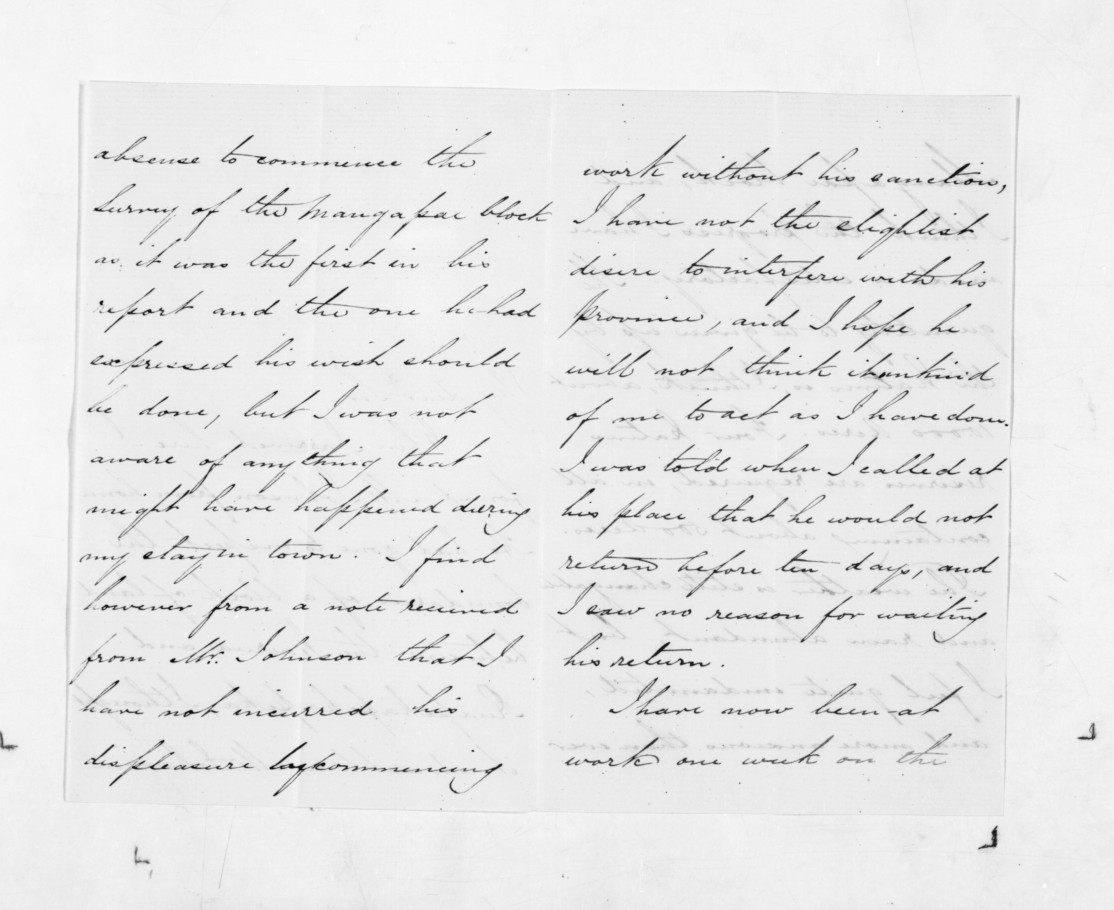 absense to commence the
Survey of the Mangapai block
as it was the first in his
report and the one he had
expressed his wish should
be done, but I was not
aware of anything that
might have happened during
my stay in town. I find
however from a note recieved
from Mr. Johnson that I
have not incurred his
displeasure by commencing
work without his sanction,
I have not the slightist
disire to interfere with his
Province, and I hope he
will not think it unkind
of me to act as I have done.
I was told when I called at
his place that he would not
return before ten days, and
I saw no reason for waiting
his return.
I have now been at
work one week on the